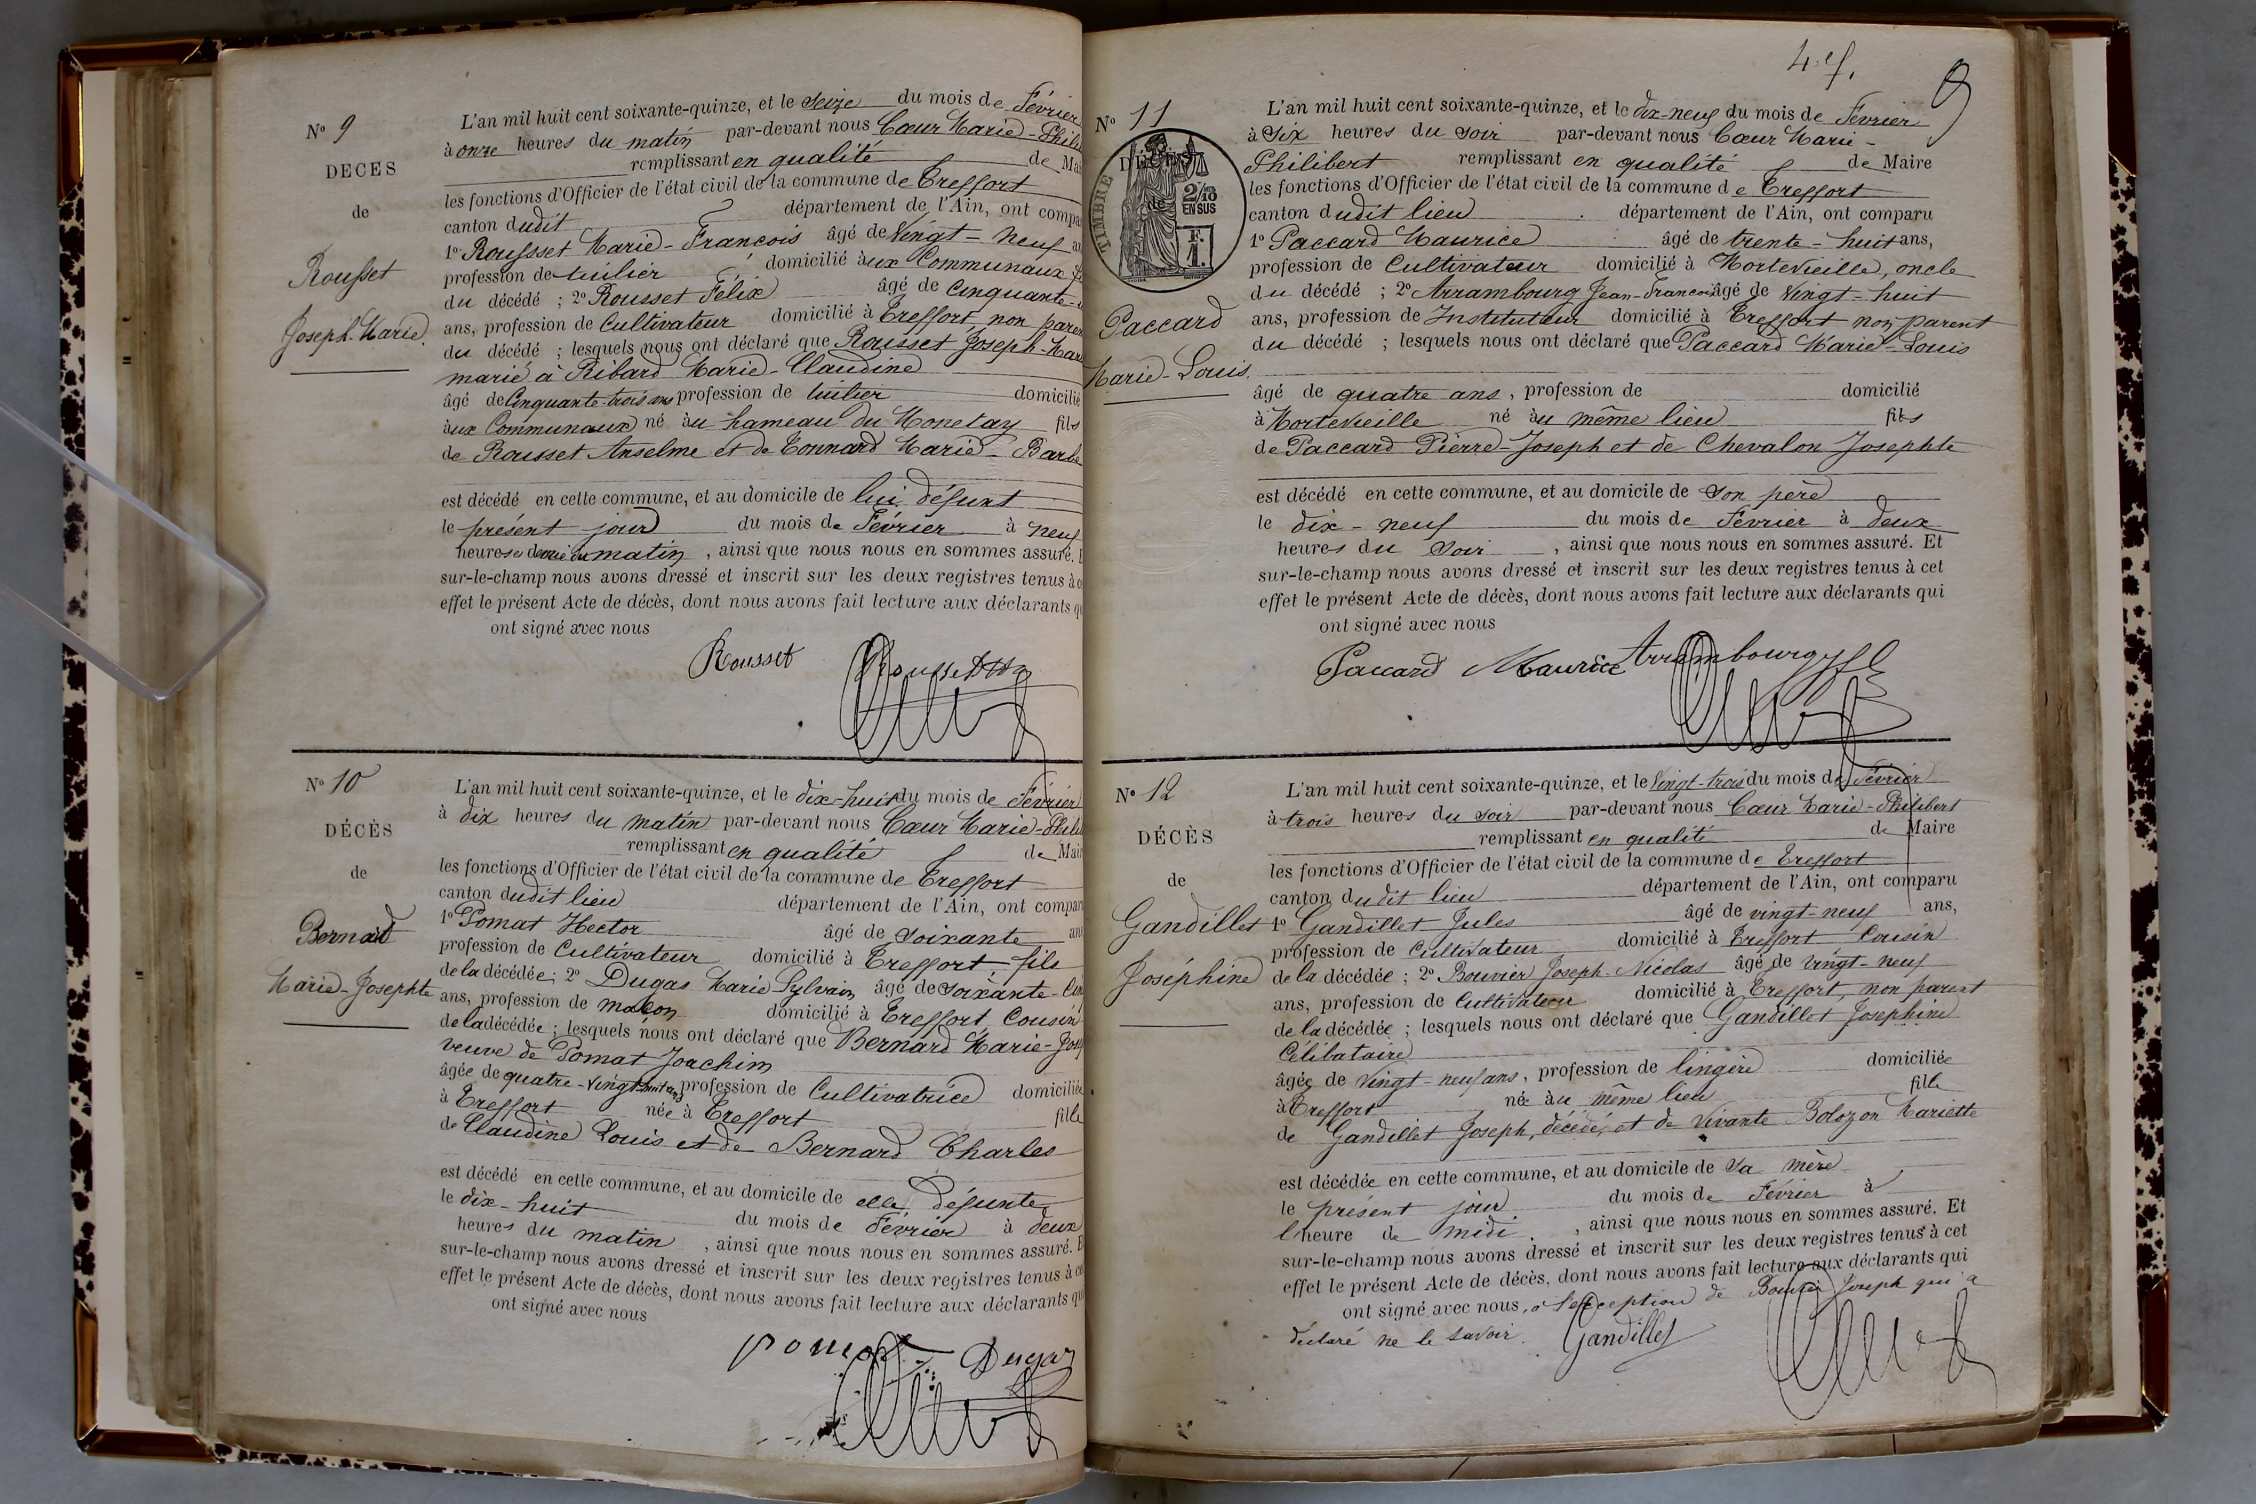 Nº 9
DÉCÈS
de
Rousset
Joseph-Marie.
L'an mil huit cent soixante-quinze, et le Seize du mois de Février
à onze heures du matin par-devant nous Cœur Marie-Phili
remplissant en qualité de Mai
les fonctions d'Officier de l'état civil de la commune de Treffort
canton dudit département de l'Ain, ont compa
1º Rousset Marie-François âgé de Vingt-neuf an
profession de tuilier domicilié aux Communaux
du décédé ; 2º Rousset Félix âgé de Cinquante-
ans, profession de Cultivateur domicilié à Treffort non paren
du décédé ; lesquels nous ont déclaré que Rousset Joseph-Mar
marié à Ribard Marie-Claudine
âgé de Cinquante-trois ans profession de tuilier domicilié
aux Communaux né au hameau du Monetay fils
de Rousset Anselme et de Tonnard Marie-Barbe
est décédé en cette commune, et au domicile de lui défunt
le présent jour du mois de Février à neuf
heures et demie du matin, ainsi que nous nous en sommes assuré. E
sur-le-champ nous avons dressé et inscrit sur les deux registres tenus à c
effet le présent Acte de décès, dont nous avons fait lecture aux déclarants qu
ont signé avec nous
Rousset
Nº 10
DÉCÈS
de
Bernard
Marie-Josephte
L'an mil huit cent soixante-quinze, et le dix-huit du mois de Février
à dix heures du matin par-devant nous Cœur Marie-Phili
remplissant en qualité de Mair
les fonctions d'Officier de l'état civil de la commune de Treffort
canton dudit lieu département de l'Ain, ont compar
1º Pomat Hector âgé de Soixante ans
profession de Cultivateur domicilié à Treffort, fils
de la décédée ; 2º Dugas Marie Sylvain âgé de Soixante-Cin
ans, profession de maçon domicilié à Treffort Cousin
de la décédée ; lesquels nous ont déclaré que Bernard Marie-Jos
veuve de Pomat Joachim
âgée de quatre-vingt-huit ans profession de Cultivatrice domiciliée
à Treffort née à Treffort fille
de Claudine Louis et de Bernard Charles
est décédé en cette commune, et au domicile de elle défunte
le dix-huit du mois de Février à deux
heures du matin, ainsi que nous nous en sommes assuré. E
sur-le-champ nous avons dressé et inscrit sur les deux registres tenus à ce
effet le présent Acte de décès, dont nous avons fait lecture aux déclarants qu
ont signé avec nous
Pomat Dugas
9
Nº 11
DÉCÈS
de
TIMBRE
2/10
EN SUS
F.
1.
Paccard
Marie-Louis.
L'an mil huit cent soixante-quinze, et le dix-neuf du mois de Février
à Six heures du soir par-devant nous Cœur Marie-
Philibert remplissant en qualité de Maire
les fonctions d'Officier de l'état civil de la commune de Treffort
canton dudit lieu département de l'Ain, ont comparu
1º Paccard Maurice âgé de trente-huit ans,
profession de Cultivateur domicilié à Mortevieille, oncle
du décédé ; 2º Arrambourg Jean-François âgé de Vingt-huit
ans, profession de Instituteur domicilié à Treffort non parent
du décédé ; lesquels nous ont déclaré que Paccard Marie-Louis
âgé de quatre ans, profession de domicilié
à Mortevieille né au même lieu fils
de Paccard Pierre-Joseph et de Chevalon Josephte
est décédé en cette commune, et au domicile de son père
le dix-neuf du mois de Février à deux
heures du soir, ainsi que nous nous en sommes assuré. Et
sur-le-champ nous avons dressé et inscrit sur les deux registres tenus à cet
effet le présent Acte de décès, dont nous avons fait lecture aux déclarants qui
ont signé avec nous
Paccard Maurice Arrambourg
Nº 12
DÉCÈS
de
Gandillet
Joséphine
L'an mil huit cent soixante-quinze, et le Vingt-trois du mois de Février
à trois heures du soir par-devant nous Cœur Marie-Philibert
remplissant en qualité de Maire
les fonctions d'Officier de l'état civil de la commune de Treffort
canton dudit lieu département de l'Ain, ont comparu
1º Gandillet Jules âgé de vingt-neuf ans,
profession de Cultivateur domicilié à Treffort Cousin
de la décédée ; 2º Bouvier Joseph-Nicolas âgé de Vingt-neuf
ans, profession de Cultivateur domicilié à Treffort, non parent
de la décédée ; lesquels nous ont déclaré que Gandillet Joséphine
Célibataire
âgée de Vingt-neuf ans, profession de lingère domiciliée
à Treffort née au même lieu fille
de Gandillet Joseph, décédé, et de Vivante Bolozon Mariette
est décédée en cette commune, et au domicile de sa mère
le présent jour du mois de Février à
l'heure de midi, ainsi que nous nous en sommes assuré. Et
sur-le-champ nous avons dressé et inscrit sur les deux registres tenus à cet
effet le présent Acte de décès, dont nous avons fait lecture aux déclarants qui
ont signé avec nous, à l'exception de Bouvier Joseph qui a
déclaré ne le savoir. Gandillet